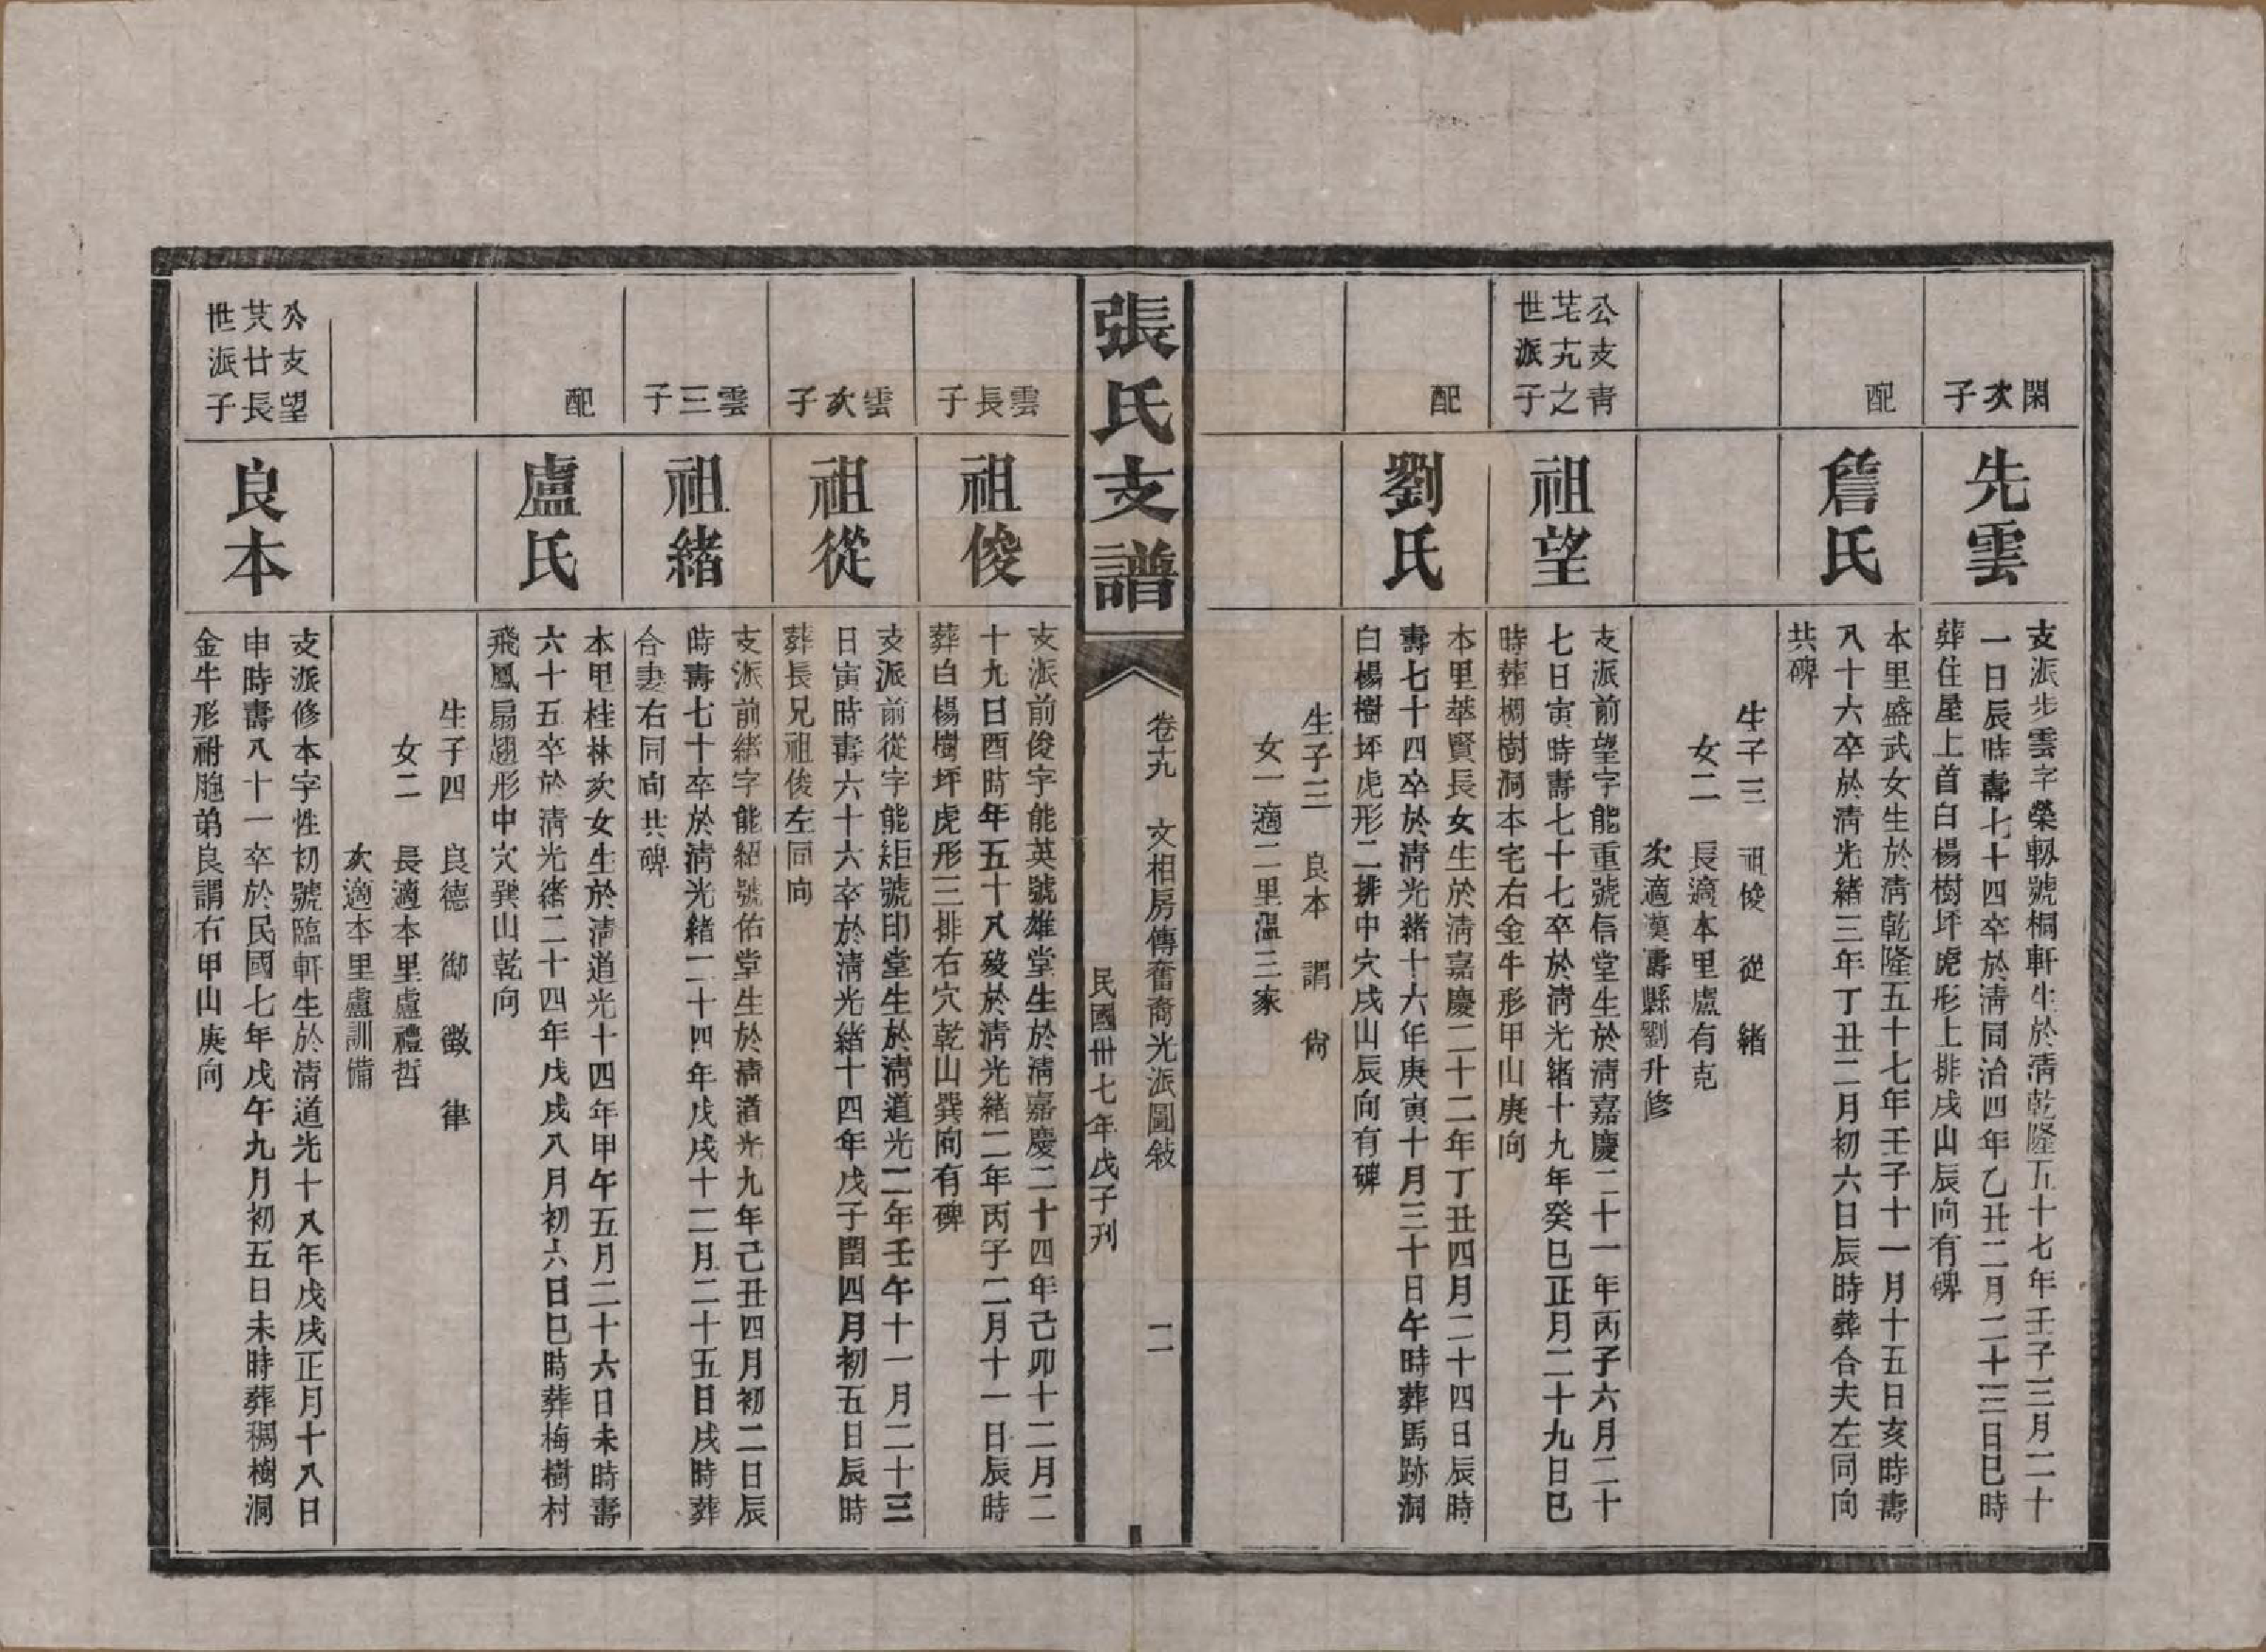 閑次子
先雲
支派步雲字榮軔號桐軒生於清乾隆五十七年壬子三月二十
一日辰時壽七十四卒於清同治四年乙丑二月二十三日巳時
葬住屋上首白楊樹坪虎形上排戌山辰向有碑
配
詹氏
本里盛武女生於清乾隆五十七年壬子十一月十五日亥時壽
八十六卒於清光緒三年丁丑二月初六日辰時葬合夫左同向
共碑
生子三 祖俊 從 緒
女二 長適本里盧有克
次適漢壽縣劉升修
公支青
芼尢之
世派子
祖望
支派前望字能重號信堂生於清嘉慶二十一年丙子六月二十
七日寅時壽七十七卒於清光緒十九年癸巳正月二十九日巳
時葬椆樹洞本宅右金牛形甲山庚向
配
劉氏
本里萃賢長女生於清嘉慶二十二年丁丑四月二十四日辰時
壽七十四卒於清光緒十六年庚寅十月三十日午時葬馬跡洞
白楊樹坪虎形二排中穴戌山辰向有碑
生子三 良本 謂 尙
女一適二里溫三家
張氏支譜
卷十九 文相房傳奮裔光派圖敘 二
民國卅七年戊子刊
雲長子
祖俊
支派前俊字能英號雄堂生於清嘉慶二十四年己卯十二月二
十九日酉時年五十八歿於清光緒二年丙子二月十一日辰時
葬白楊樹坪虎形三排右穴乾山巽向有碑
雲次子
祖從
支派前從字能矩號印堂生於清道光二年壬午十一月二十三
日寅時壽六十六卒於清光緒十四年戊子閏四月初五日辰時
葬長兄祖俊左同向
雲三子
祖緒
支派前緒字能紹號佑堂生於清道光九年己丑四月初二日辰
時壽七十卒於清光緒二十四年戊戌十二月二十五日戌時葬
合妻右同向共碑
配
盧氏
本里桂林次女生於清道光十四年甲午五月二十六日未時壽
六十五卒於清光緒二十四年戊戌八月初六日巳時葬梅樹村
飛鳳扇翅形中穴巽山乾向
生子四 良德 御 徵 律
女二 長適本里盧禮哲
次適本里盧訓備
公支望
芃廿長
世派子
良本
支派修本字性初號臨軒生於清道光十八年戊戌正月十八日
申時壽八十一卒於民國七年戊午九月初五日未時葬椆樹洞
金牛形祔胞弟良謂右甲山庚向